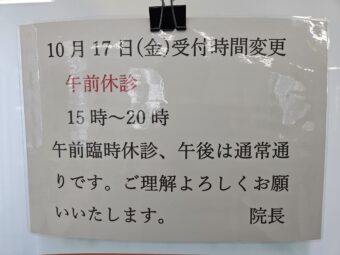 10月17日(金)受付時間変更
午前休診
15時～20時
午前臨時休診、午後は通常通
りです。ご理解よろしくお願
いいたします。 院長